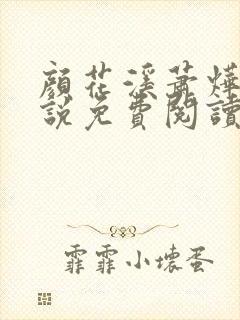 顏花溪蕭燁
說免費閱讀
霏霏小壞蛋